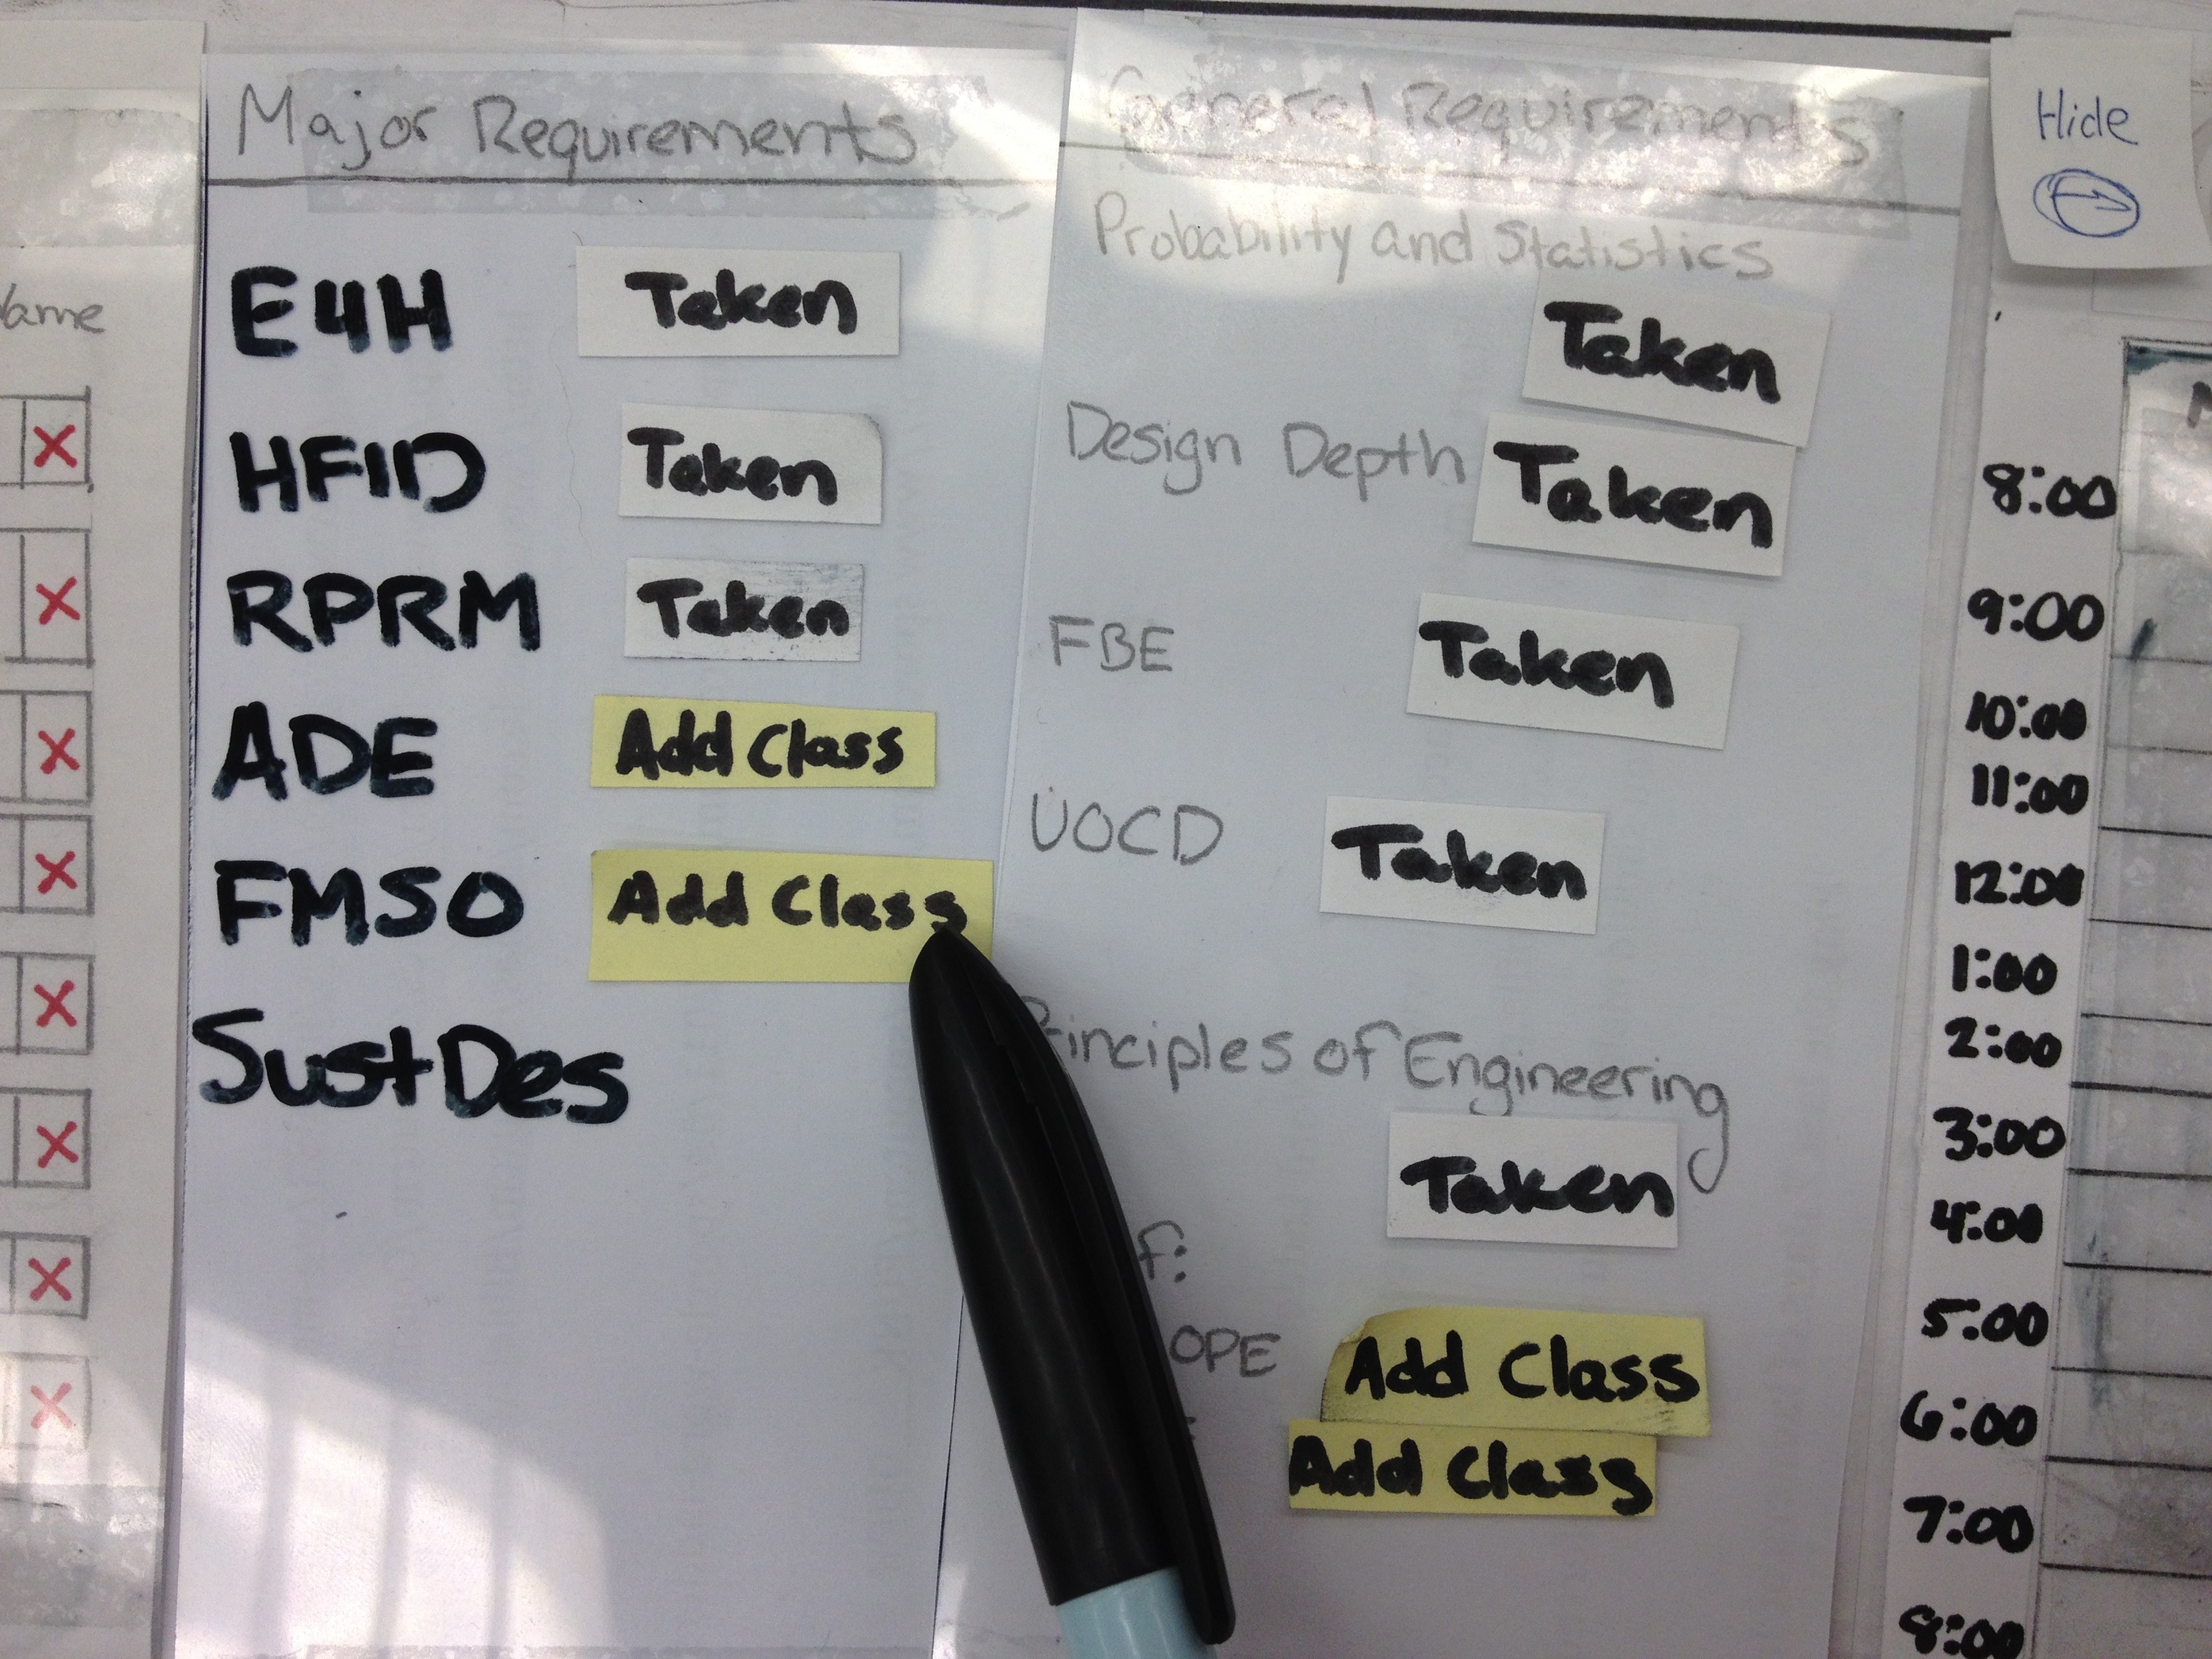 Name
X
X
X
X
X
X
X
X
Major Requirements
E4H Taken
HFID Taken
RPRM Taken
ADE Add Class
FMSO Add Class
SustDes
General Requirements
Probability and Statistics
Taken
Design Depth Taken
FBE Taken
UOCD Taken
Principles of Engineering
Taken
f:
OPE Add Class
Add Class
Hide
8:00
9:00
10:00
11:00
12:00
1:00
2:00
3:00
4:00
5:00
6:00
7:00
8:00